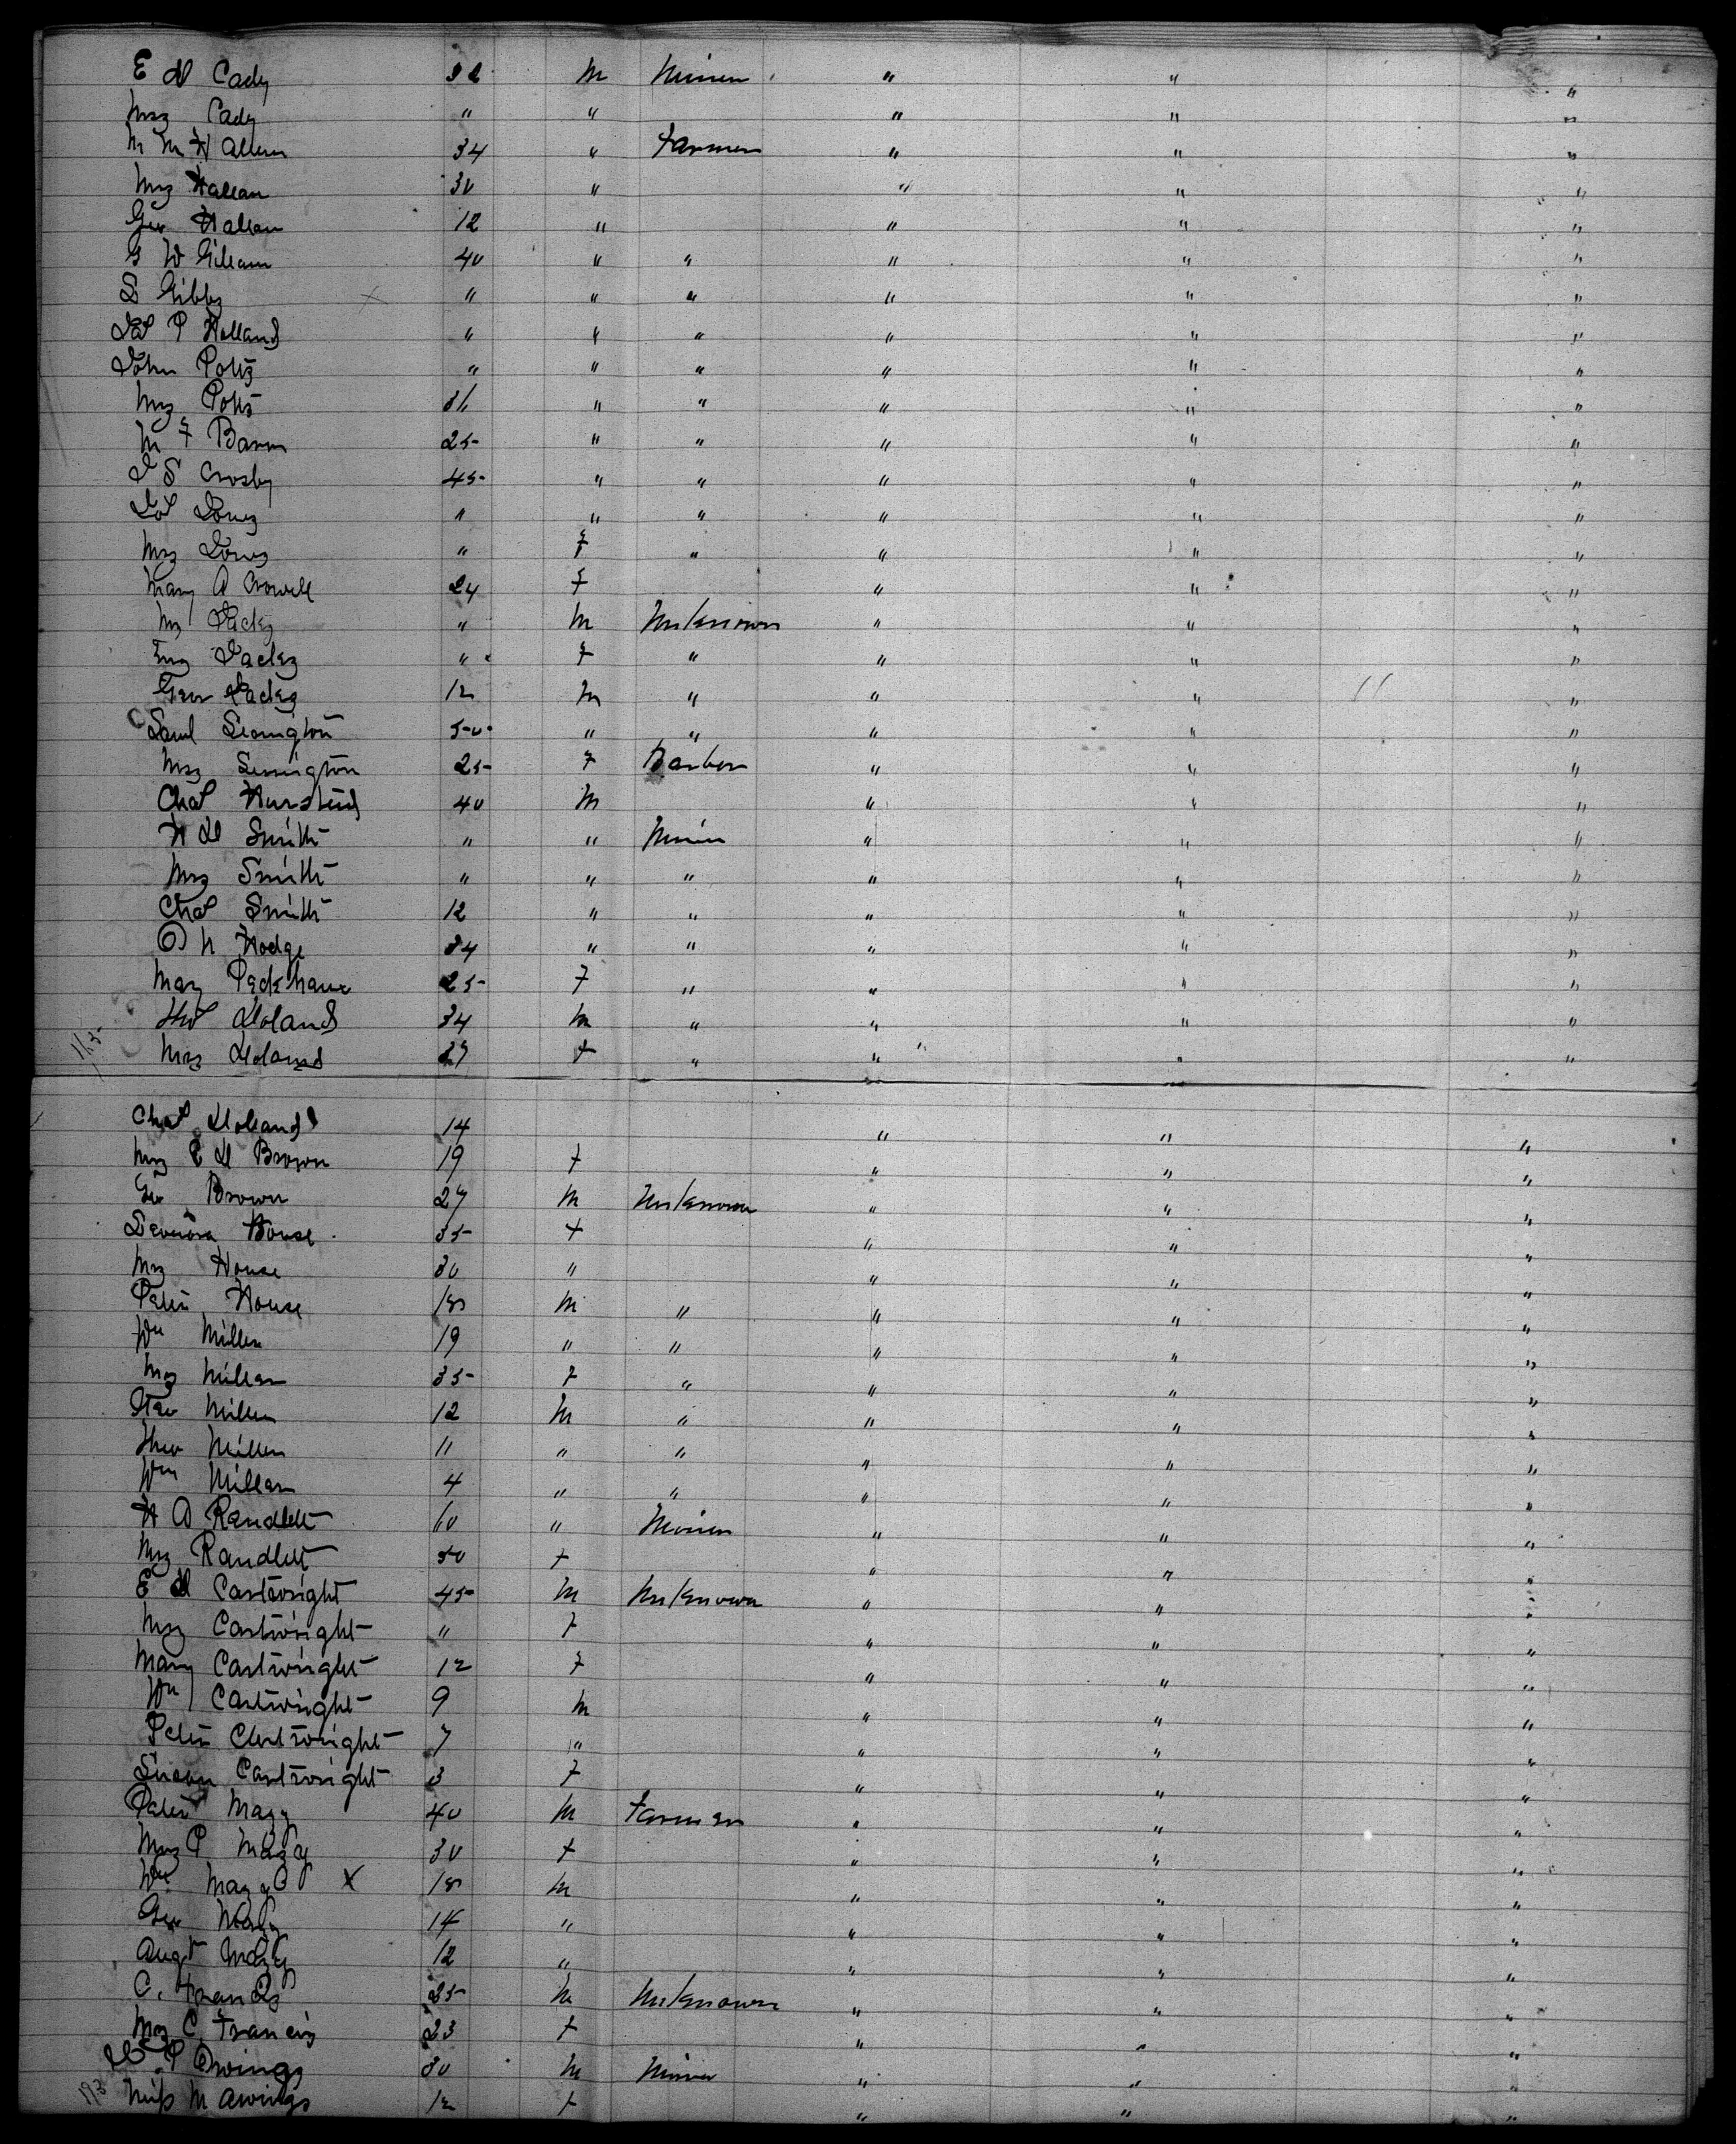 E D Cady 32 m Miner " " "
Mrs Cady " " " " "
M M Hallen 34 " Farmer " " "
Mrs Hallan 30 " " " "
Geo Hallan 12 " " " "
G W Gilleam 40 " " " " "
S Gibbs " " " " " "
Jas P Holland " " " " " "
John Potts " " " " " "
Mrs Potts 36 " " " " "
M F Baron 25 " " " " "
J S Crosby 45 " " " " "
Jos Jones " " " " " "
Mrs Jones " F " " " "
Mary A Crowell 24 F " " "
Mr Jacks " M Unknown " " "
Jacks " F " " " "
Geo Jacks 12 M " " " "
Saml 50 " " " " "
Mrs 25 F Barber " " "
Chas 40 M " " "
H D Smith " " Miner " " "
Mrs Smith " " " " " "
Chas Smith 12 " " " " "
O N Hodge 34 " " " " "
Mary Peckham 25 F " " " "
Thos Doland 34 M " " " "
Mrs Doland 27 F " " " "
Chas Dolland 14 " " "
Mrs E D Brown 19 F " " "
Geo Brown 27 M Unknown " " "
House 35 F " " "
Mrs House 30 " " " "
Peter House 18 M " " " "
Wm Miller 19 " " " " "
Mrs Miller 35 F " " " "
Miller 12 M " " " "
Theo Miller 11 " " " " "
Wm Miller 4 " " " " "
H A Randlett 60 " Miner " " "
Mrs Randlett 50 F " " "
E D Cartwright 45 M Unknown " " "
Mrs Cartwright " F " " "
Mary Cartwright 12 F " " "
Wm Cartwright 9 M " " "
Peter Cartwright 7 " " " "
Susan Cartwright 3 F " " "
Peter Mazy 40 M Farmer " " "
Mrs P Mazy 30 F " " "
Wm Mazy X 18 M " " "
Geo Mazy 14 " " " "
Augt Mazy 12 " " " "
C. Francis 25 M Unknown " " "
Mrs C Francis 23 F " " "
P Owings 30 M Miner " " "
Miss M Owings 12 F " " "